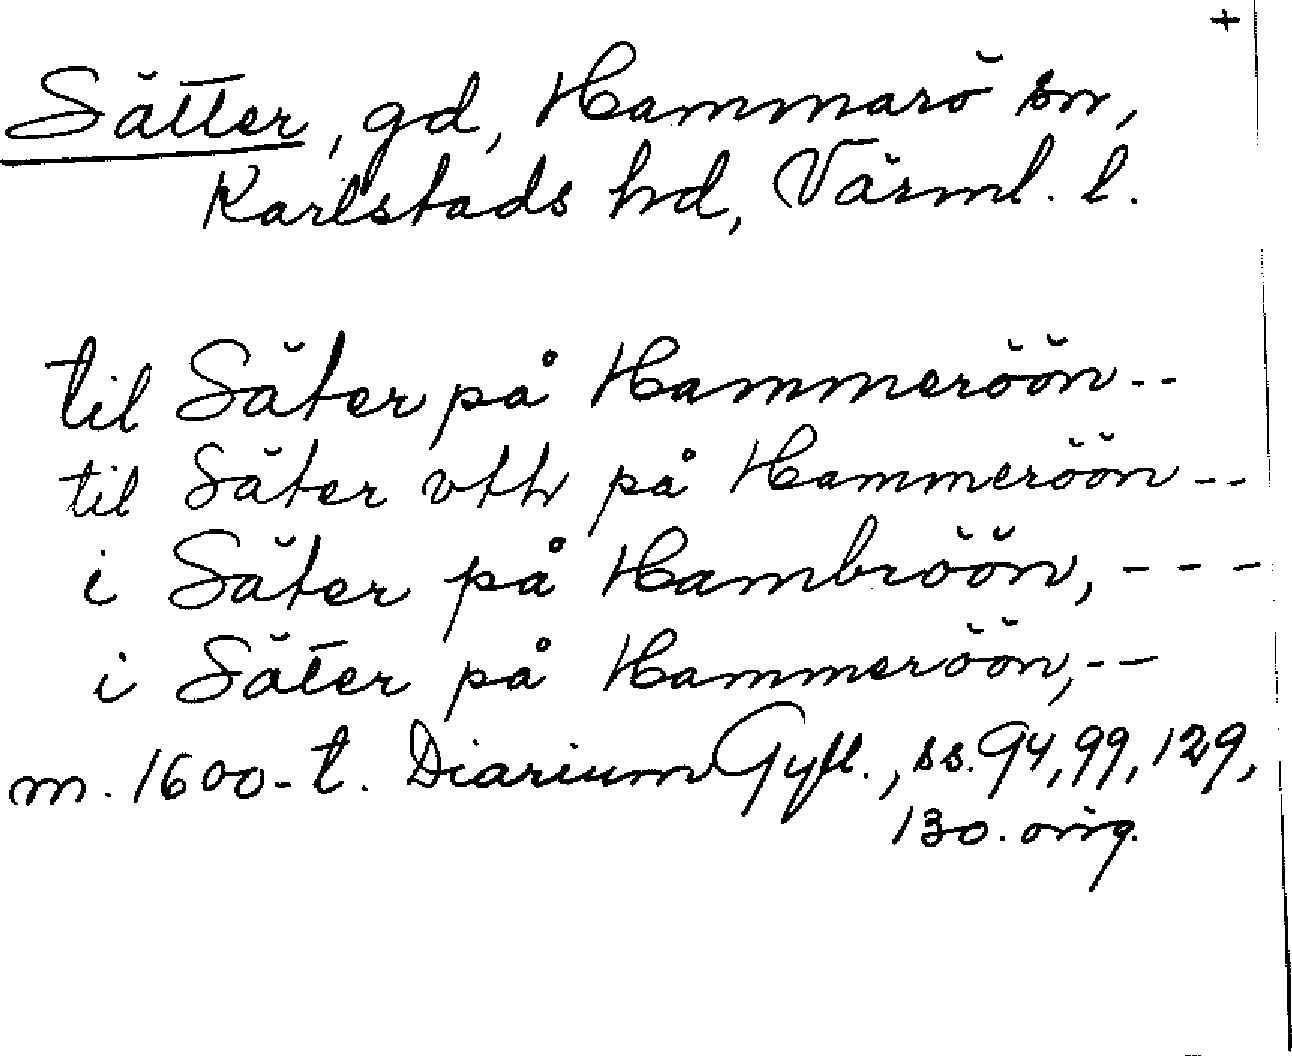 +
Sätter, gd, Hammarö sn,
Karlstads hd, Värml. l.
til Säter på Hammeröön--
til Säter vthr på Hammeröön--
i Säter på Hambröön,---
i Säter på Hammeröön,--
m. 1600-t. Diarium Gyll., ss. 94, 99, 129,
130. orig.